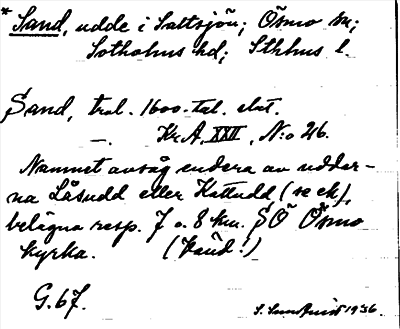 * Sand, udde i Saltsjön; Ösmo sn;
Sotholms hd; Sthlms l.
Sand, trol. 1600-tal. ekt.
—. Kr.A. XXII, N:o 26.
Namnet avsåg endera av uddar-
na Låsudd eller Kattudd (se ek),
belägna resp. 7 o. 8 km. SÖ Ösmo
kyrka.
G. 67.
1936.